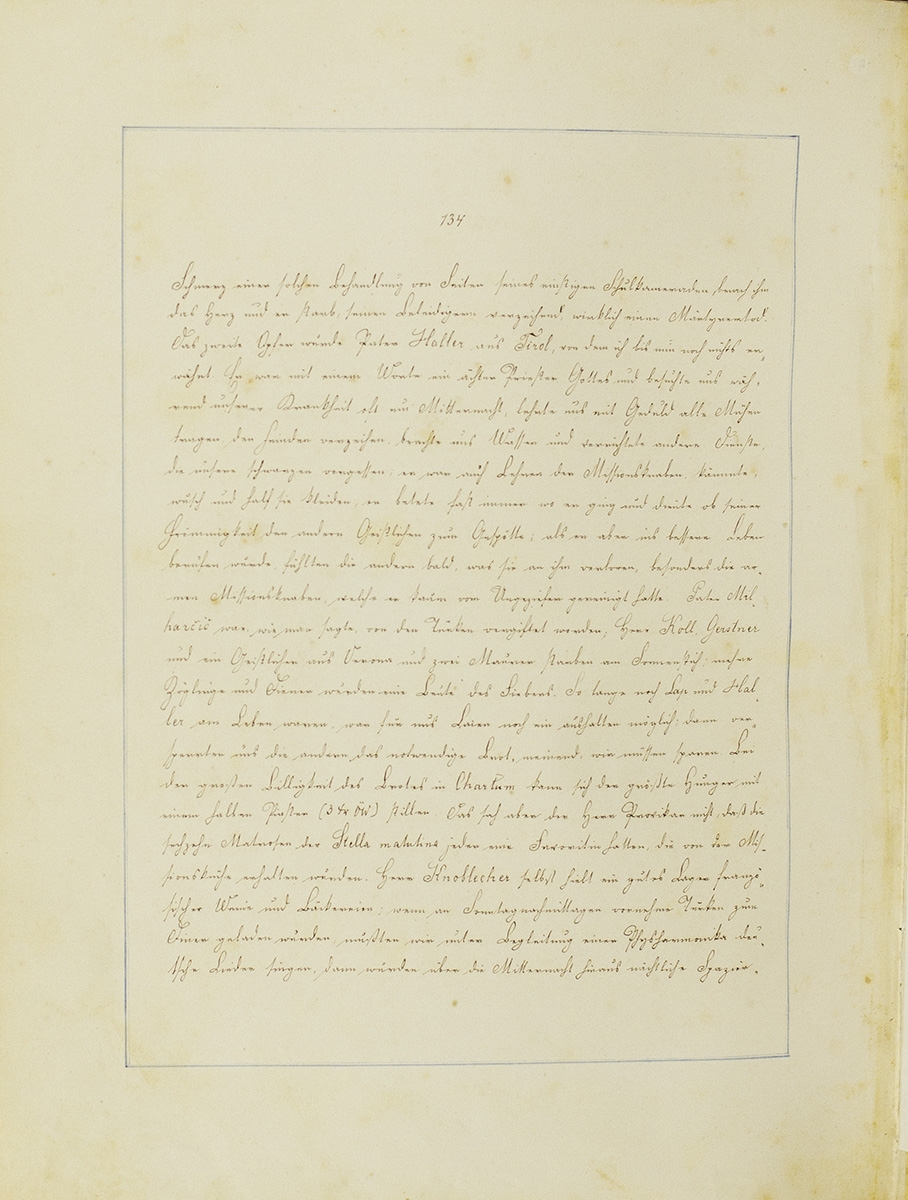 134
Schmerz einer solchen Behandlung von Seiten seines einstigen Schulkameraden brach ihm
das Herz und er starb, seinen Beleidigern verzeihend, wirklich einen Märtyrertod.
Das zweite Opfer wurde Pater Haller aus Tirol, von dem ich bis nun noch nichts er-
wähnt. Er war mit einem Worte ein ächter Priester Gottes und besuchte uns wäh-
rend unserer Krankheit oft um Mitternacht, lehrte uns mit Geduld alle Mühen
tragen, den Feinden verzeihen, brachte uns Wasser und verrichtete andere Dienste,
die unsere schwarzen vergessen; er war auch Lehrer der Missionsknaben, kämmte,
wusch und half sie kleiden, er betete fast immer wo er ging und diente ob seiner
Frömmigkeit den andern Geistlichen zum Gespötte; als er aber ins bessere Leben
berufen wurde, fühlten die andern bald, was sie an ihm verloren, besonders die ar-
men Missionsknaben, welche er kaum vom Ungeziefer gereinigt hatte. Pater Mil-
harčič war, wie man sagte, von den Türken vergiftet worden; Herr Koll, Gerstner
und ein Geistlicher aus Verona und zwei Maurer starben am Sonnenstich; mehre
Zöglinge und Diener wurden eine Beute des Fiebers. So lange noch Lap und Hal-
ler am Leben waren, war für uns Laien noch ein aushalten möglich; dann ver-
sperrten uns die andern das notwendige Brot, meinend, wir müssen sparen. Bei
der großen Billigkeit des Brotes in Chartum kann sich der größte Hunger mit
einem halben Piaster (3 kr ÖW) stillen. Das sah aber der Herr Provikar nicht, daß die
sechzehn Matrosen der Stella matutina jeder eine Favoritin hatten, die von der Mis-
sionsküche erhalten wurden. Herr Knoblecher selbst hielt ein gutes Lager franzö-
sischer Weine und Bäckereien; wenn an Sonntagnachmittagen vornehme Türken zum
Diner geladen wurden, mußten wir unter Begleitung einer Physharmonika deu-
tsche Lieder singen, dann wurden über die Mitternacht hinaus nächtliche Spazier-